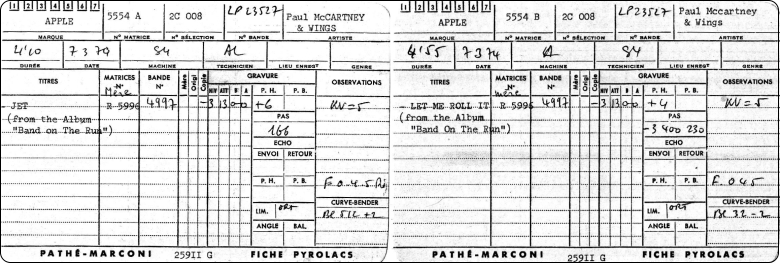 1 2 3 4 5 6 7
APPLE
5554 A
2C 008
LP23527
Paul McCARTNEY
& WINGS
MARQUE
N° MATRICE
N° SÉLECTION
N° BANDE
ARTISTE
4'10
7 3 74
S4
AL
DURÉE
DATE
MACHINE
TECHNICIEN
LIEU ENREGT
GENRE
TITRES
MATRICES
N°
Mère
BANDE
N°
Mère
Origi
Copie
GRAVURE
NIV ATT B A
P. H.
P. B.
OBSERVATIONS
JET
R 5996
4997
-3
13
+6
KV=5
(from the Album
"Band on The Run")
PAS
166
ECHO
ENVOI
RETOUR
P. H.
P. B.
CURVE-BENDER
LIM.
ORT
ANGLE
BAL.
PATHÉ-MARCONI
259II G
FICHE PYROLACS
1 2 3 4 5 6 7
APPLE
5554 B
2C 008
LP23527
Paul McCartney
& WINGS
MARQUE
N° MATRICE
N° SÉLECTION
N° BANDE
ARTISTE
4'55
7 3 74
S4
DURÉE
DATE
MACHINE
TECHNICIEN
LIEU ENREGT
GENRE
TITRES
MATRICES
N°
BANDE
N°
Mère
Origi
Copie
GRAVURE
NIV ATT B A
P. H.
P. B.
OBSERVATIONS
- LET ME ROLL IT
R 5996
4997
-3
13
+4
KV=5
(from the Album
"Band on The Run")
PAS
-3 400 230
ECHO
ENVOI
RETOUR
P. H.
P. B.
F. 045
CURVE-BENDER
LIM.
ORT
ANGLE
BAL.
PATHÉ-MARCONI
259II G
FICHE PYROLACS